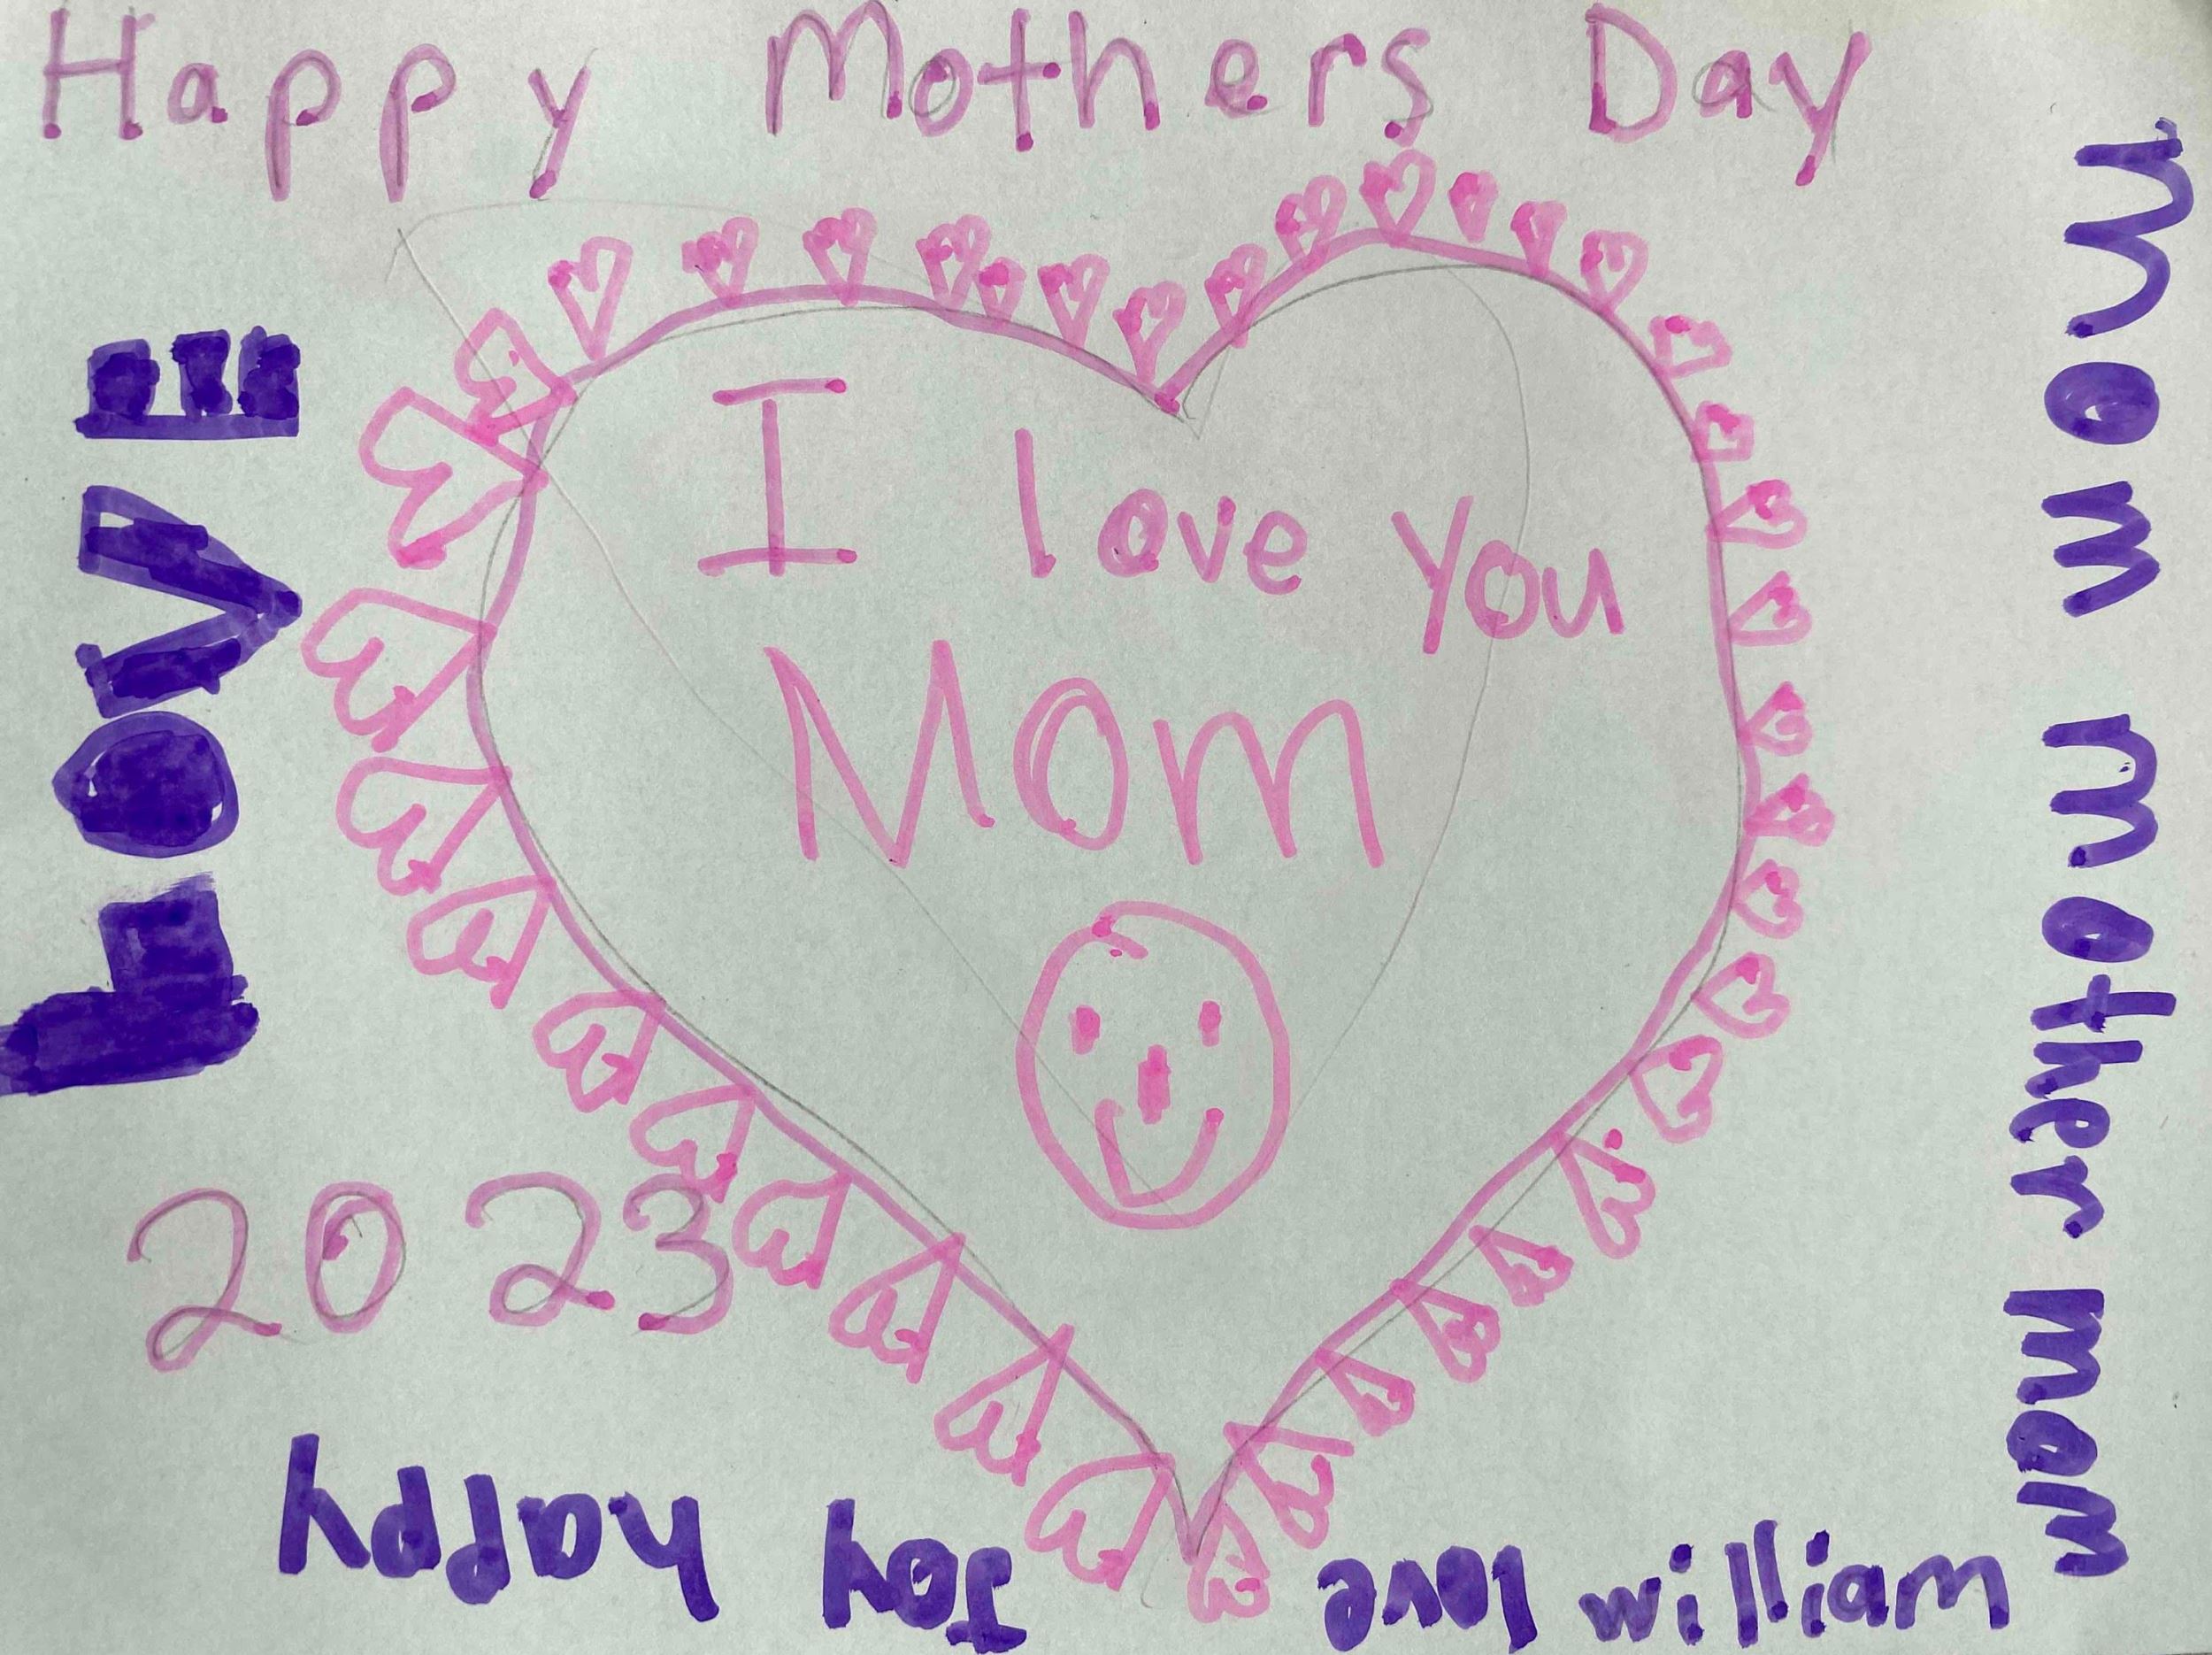 Happy Mothers Day
LOVE
I love you
Mom
2023
Mom mother mom
love Joy happy
william